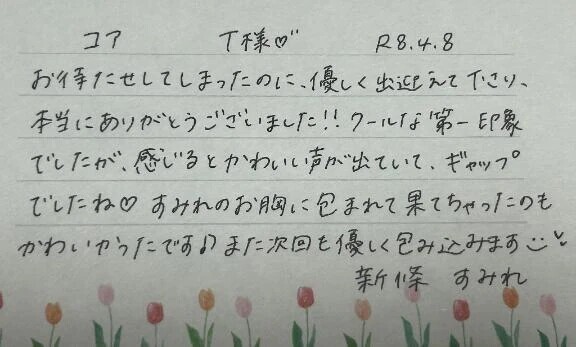 コア T様♡ R8.4.8
お待たせしてしまったのに、優しく出迎えて下さり、
本当にありがとうございました!! クールな第一印象
でしたが、感じるとかわいい声が出ていて、ギャップ
でしたね♡ すみれのお胸に包まれて果てちゃったのも
かわいかったです♪また次回も優しく包み込みます
新條 すみれ